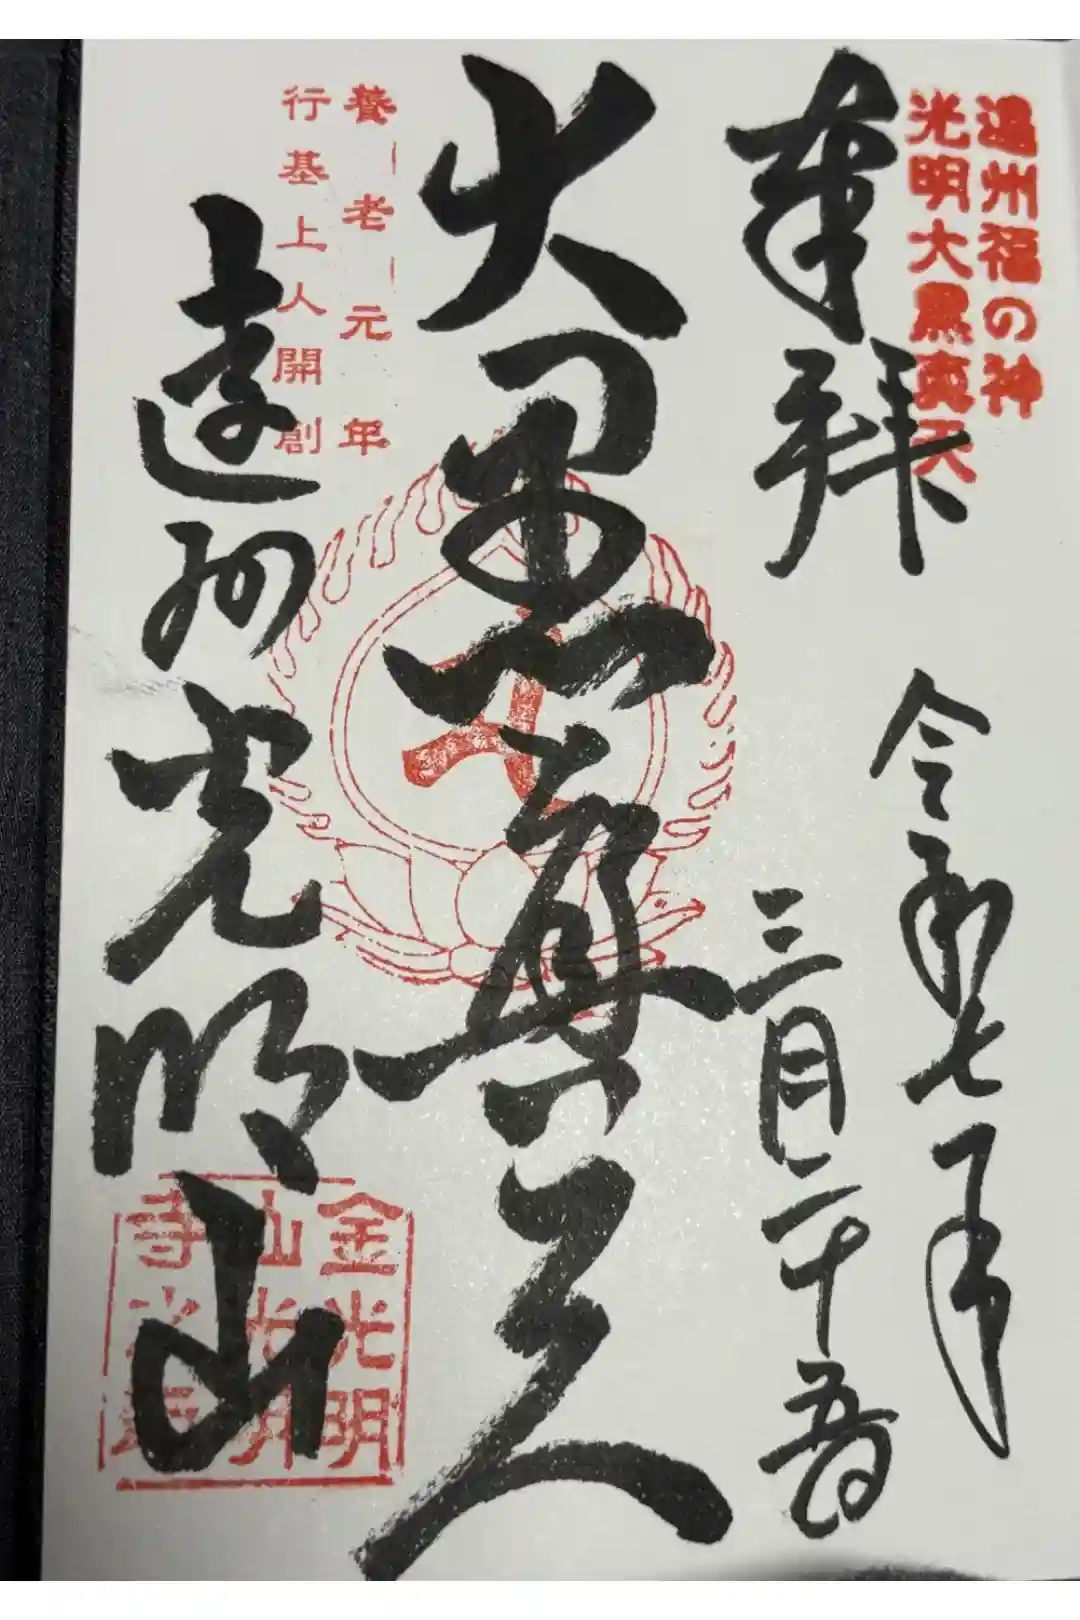 遠州福の神
光明大黒真天
奉拝
令和七年
三月二十五日
大黒真天
養老元年
行基上人開創
遠州光明山
金光明
山光明
寺光